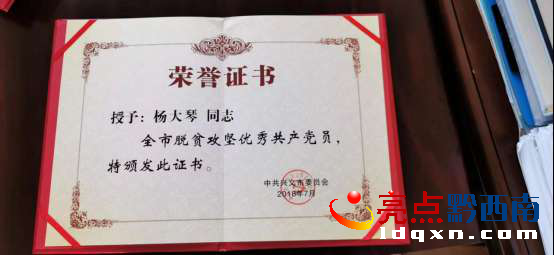 荣誉证书
授予：杨大琴 同志
全市脱贫攻坚优秀共产党员，
特颁发此证书。
中共兴义市委员会
2018年7月
亮点黔西南
ldqxn.com